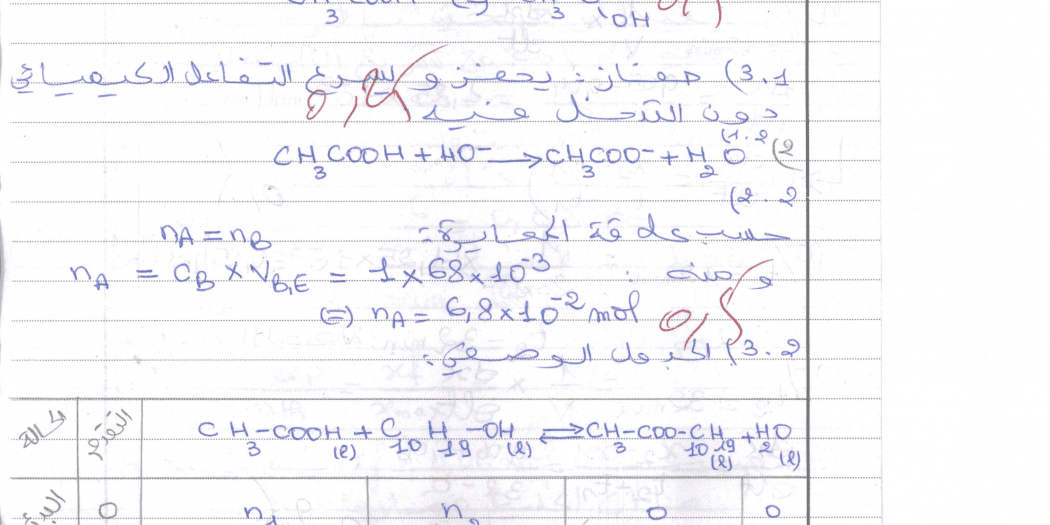 3.1) حفاز: يحفز و يسرع التفاعل الكيميائي 0,5
دون التدخل فيه
2) 1.2) CH3COOH + HO- → CH3COO- + H2O
2.2)
حسب علاقة المعايرة: nA = nB
ومنه: nA = CB × VB,E = 1 × 68 × 10^-3
(=) nA = 6,8 × 10^-2 mol 0,5
3.2) الجدول الوصفي:
الحالة التقدم CH3-COOH(l) + C10H19-OH(l) ⇌ CH3-COO-C10H19(l) + H2O(l)
0 n1 0 0